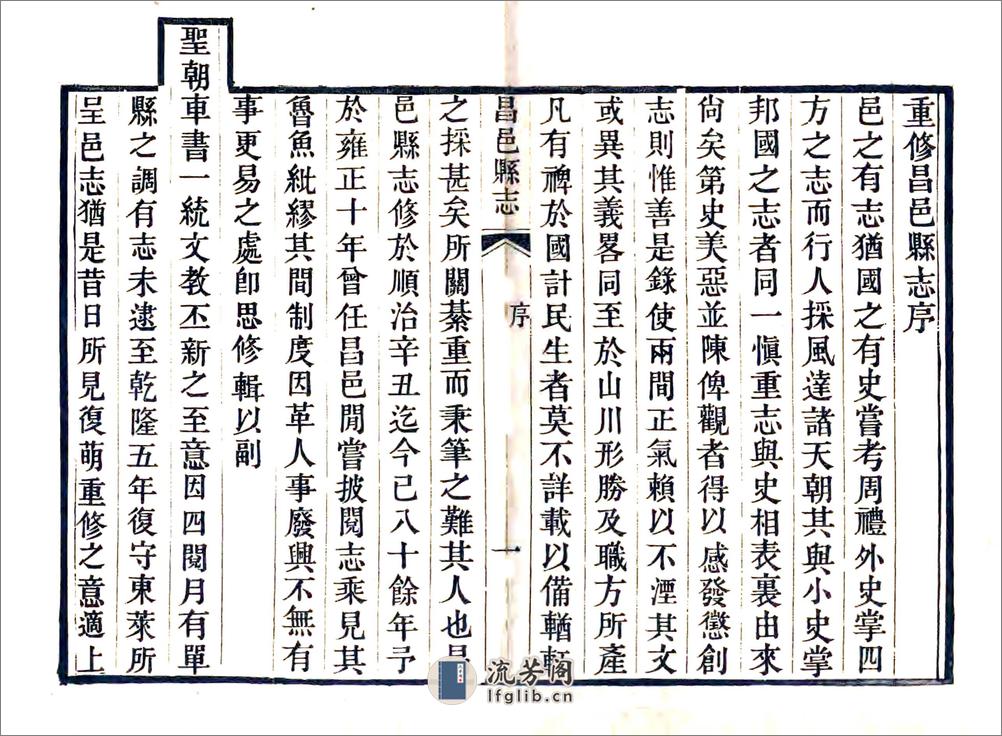 重修昌邑縣志序
邑之有志猶國之有史嘗考周禮外史掌四
方之志而行人採風達諸天朝其與小史掌
邦國之志者同一慎重志與史相表裏由來
尙矣第史美惡並陳俾觀者得以感發懲創
志則惟善是錄使兩間正氣賴以不湮其文
或異其義畧同至於山川形勝及職方所產
凡有裨於國計民生者莫不詳載以備輶軒
昌邑縣志 序 一
之採甚矣所關綦重而秉筆之難其人也昌
邑縣志修於順治辛丑迄今已八十餘年予
於雍正十年曾任昌邑閒嘗披閱志乘見其
魯魚紕繆其間制度因革人事廢興不無有
事更易之處卽思修輯以副
聖朝車書一統文教丕新之至意因四閱月有單
縣之調有志未逮至乾隆五年復守東萊所
呈邑志猶是昔日所見復萌重修之意適上
流芳阁
lfglib.cn